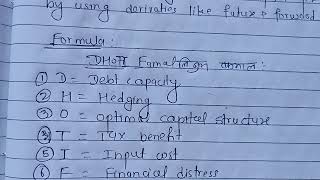 by using derivaties like future & forward
Formula:
DHOTI
① D = Debt capacity
② H = Hedging
③ O = optimal capital structure
④ T = Tax benefit
⑤ I = Input cost
⑥ F = Financial distress